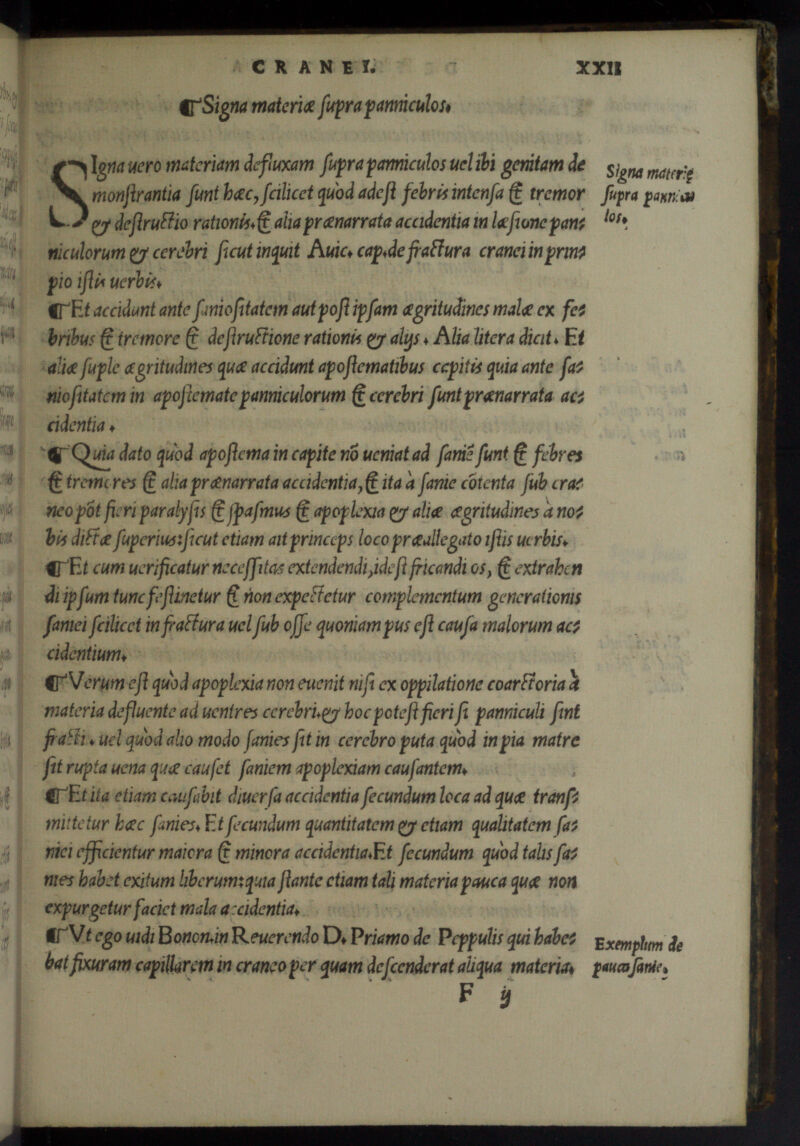 CRANEI. XXII
❡Signa materiæ ſupra panniculos.
SIgna uero materiam defluxam ſupra panniculos uel ibi genitam de
monſtrantia ſunt hæc, ſcilicet quòd adeſt febris intenſa & tremor
& deſtructio rationis. & alia prænarrata accidentia in læſione pan⸗
niculorum & cerebri ſicut inquit Auic. cap. de fractura cranei in prin⸗
pio iſtis uerbis.
Signa materię
ſupra pannicu
los.
❡Et accidunt ante ſanioſitatem aut poſt ipſam ægritudines malæ ex fe⸗
bribus & tremore & deſtructione rationis & alijs. Alia litera dicit. Et
aliæ ſuple ægritudines quæ accidunt apoſtematibus capitis quia ante ſa⸗
nioſitatem in apoſtemate panniculorum & cerebri ſunt prænarrata ac⸗
cidentia.
❡Quia dato quòd apoſtema in capite nō ueniat ad ſaniē ſunt & febres
& tremores & alia prænarrata accidentia, & ita à ſanie cōtenta ſub cra⸗
neo pōt fieri paralyſis & ſpaſmus & apoplexia & aliæ ægritudines à no⸗
bis dictæ ſuperius: ſicut etiam ait princeps loco præallegato iſtis uerbis.
❡Et cum uerificatur neceſſitas extendendi, ideſt fricandi os, & extrahen
di ipſum tunc feſtinetur & non expectetur complementum generationis
ſaniei ſcilicet in fractura uel ſub oſſe quoniam pus eſt cauſa malorum ac⸗
cidentium.
❡Verum eſt quòd apoplexia non euenit niſi ex oppilatione coarctoria à
materia defluente ad uentres cerebri. & hoc poteſt fieri ſi panniculi ſint
fracti. uel quòd alio modo ſanies ſit in cerebro puta quòd in pia matre
ſit rupta uena quæ cauſet ſaniem apoplexiam cauſantem.
❡Et ita etiam cauſabit diuerſa accidentia ſecundum loca ad quæ tranſ⸗
mittetur hæc ſanies. Et ſecundum quantitatem & etiam qualitatem ſa⸗
niei efficientur maiora & minora accidentia. Et ſecundum quòd talis ſa⸗
nies habet exitum liberum: quia ſtante etiam tali materia pauca quæ non
expurgetur faciet mala accidentia.
❡Vt ego uidi Bonon. in Reuerendo D. Priamo de Peppulis qui habe⸗
bat fixuram capillarem in craneo per quam deſcenderat aliqua materia.
Exemplum de
pauca ſanie.
F ij